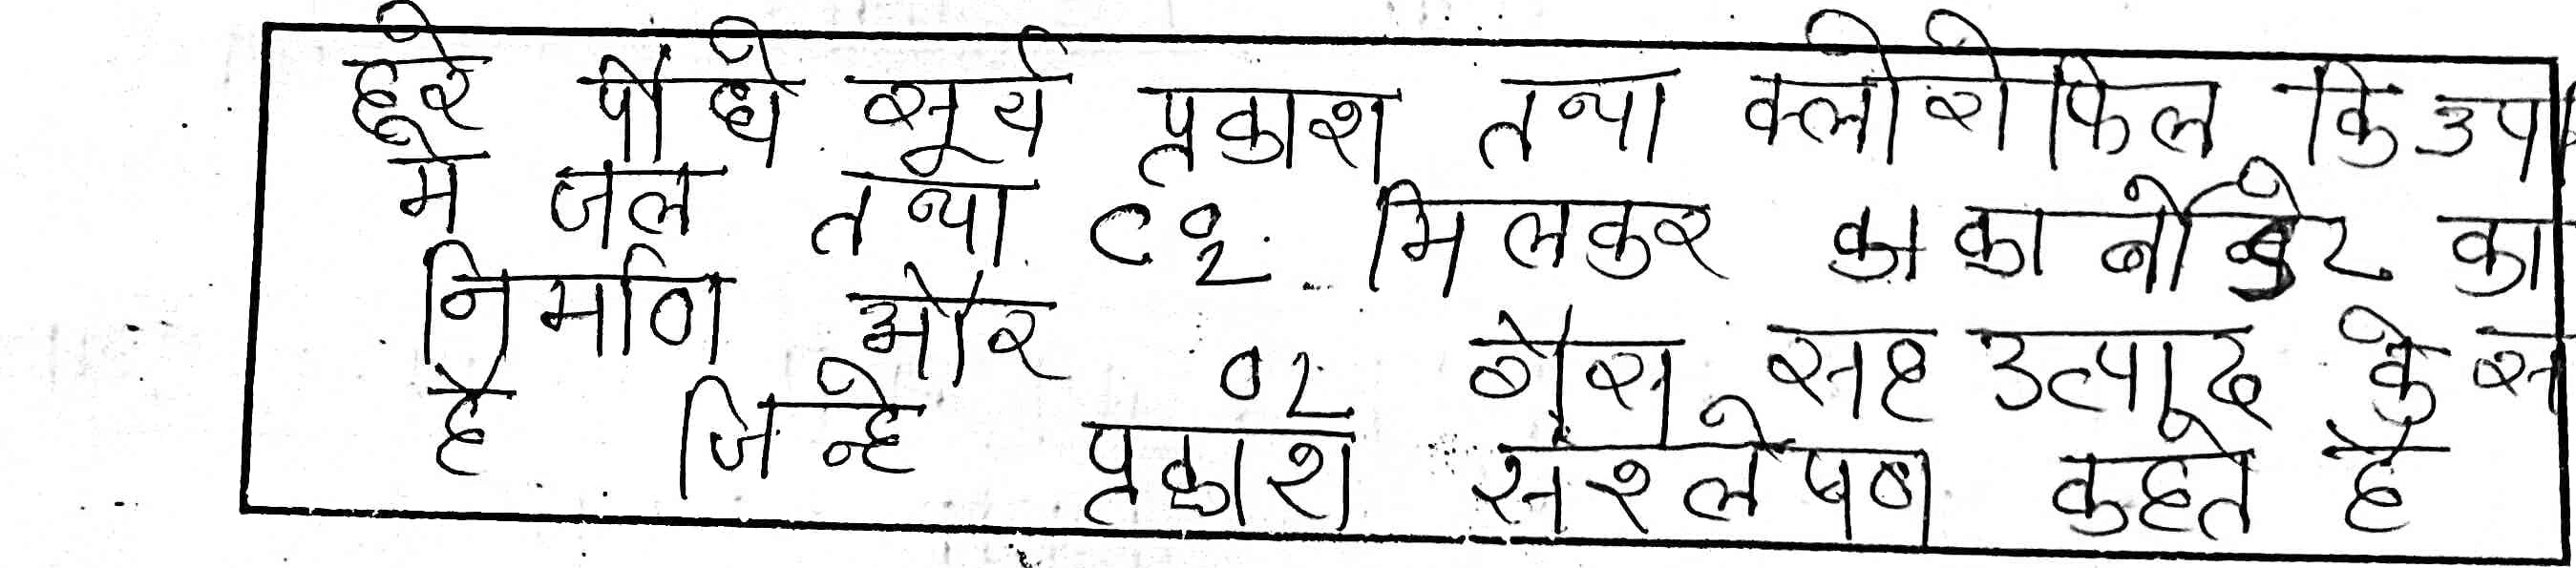 हरे पौधे सूर्य प्रकाश तथा क्लोरोफिल कि उप
मे जल तथा C02 मिलकर का
निर्माण और 02 गैस सह उत्पाद के स
है जिन्हे प्रकाश संश्लेषण कहते है